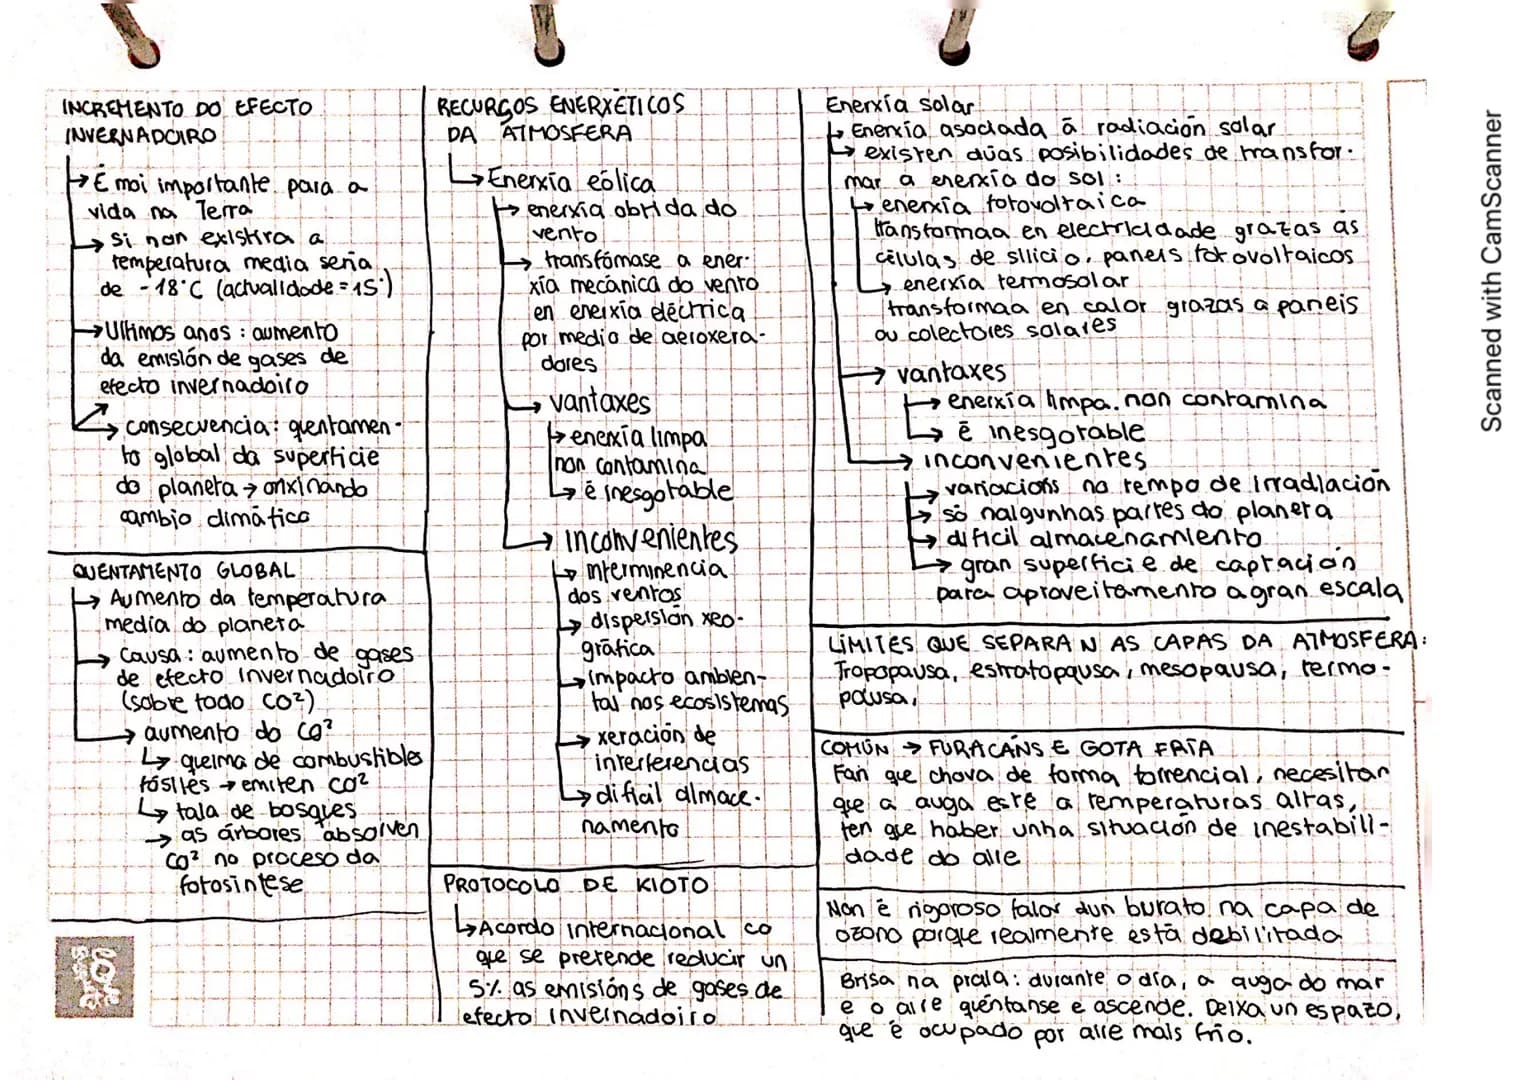 INCREMENTO DO EFECTO
INVERNADOIRO
→ É moi importante para a
vida na Terra
→ si non existira a
temperatura media sería
de -18°C (actualidade = 15°)
→ Ultimos anos : aumento
da emisión de gases de
efecto invernadoiro
→ consecuencia: quentamen-
to global da superficie
do planeta → orixinando
cambio climático
QUENTAMENTO GLOBAL
→ Aumento da temperatura
media do planeta
→ Causa : aumento de gases
de efecto invernadoiro
(sobre todo CO²)
→ aumento do CO²
↳ queima de combustibles
fósiles → emiten CO²
↳ tala de bosques
→ as árbores absolven
CO² no proceso da
fotosíntese
love
RECURSOS ENERXÉTICOS
DA ATMOSFERA
↳ Enerxía eólica
→ enerxía obtida do
vento
→ transfómase a ener-
xía mecánica do vento
en enerxía eléctrica
por medio de aeroxera-
dores
→ vantaxes
→ enerxía limpa
non contamina
→ é inesgotable
→ inconvenientes
→ interminencia
dos ventos
→ dispersión xeo-
gráfica
→ impacto ambien-
tal nos ecosistemas
→ xeración de
interferencias
→ dificil almace-
namento
PROTOCOLO DE KIOTO
↳ Acordo internacional co
que se pretende reducir un
5% as emisións de gases de
efecto invernadoiro
Enerxía solar
↳ Enerxía asociada á radiación solar
↳ existen dúas posibilidades de transfor-
mar a enerxía do sol :
→ enerxía fotovoltaica
transformaa en electricidade grazas ás
células de silicio, paneis fotovoltaicos
→ enerxía termosolar
transformaa en calor grazas a paneis
ou colectores solares
→ vantaxes
→ enerxía limpa. non contamina
→ é inesgotable
→ inconvenientes
→ variacións no tempo de irradiación
→ só nalgunhas partes do planeta
→ dificil almacenamiento
→ gran superficie de captación
para aproveitamento a gran escala
LÍMITES QUE SEPARAN AS CAPAS DA ATMOSFERA:
Tropopausa, estratopausa, mesopausa, termo-
pausa,
COMÚN → FURACÁNS E GOTA FRÍA
Fan que chova de forma torrencial, necesitan
que a auga esté a temperaturas altas,
ten que haber unha situación de inestabili-
dade do aire
Non é rigoroso falar dun burato na capa de
ozono porque realmente está debilitada
Brisa na praia : durante o día, a auga do mar
e o aire quéntanse e ascende. Deixa un espazo,
que é ocupado por aire máis frío.
Scanned with CamScanner